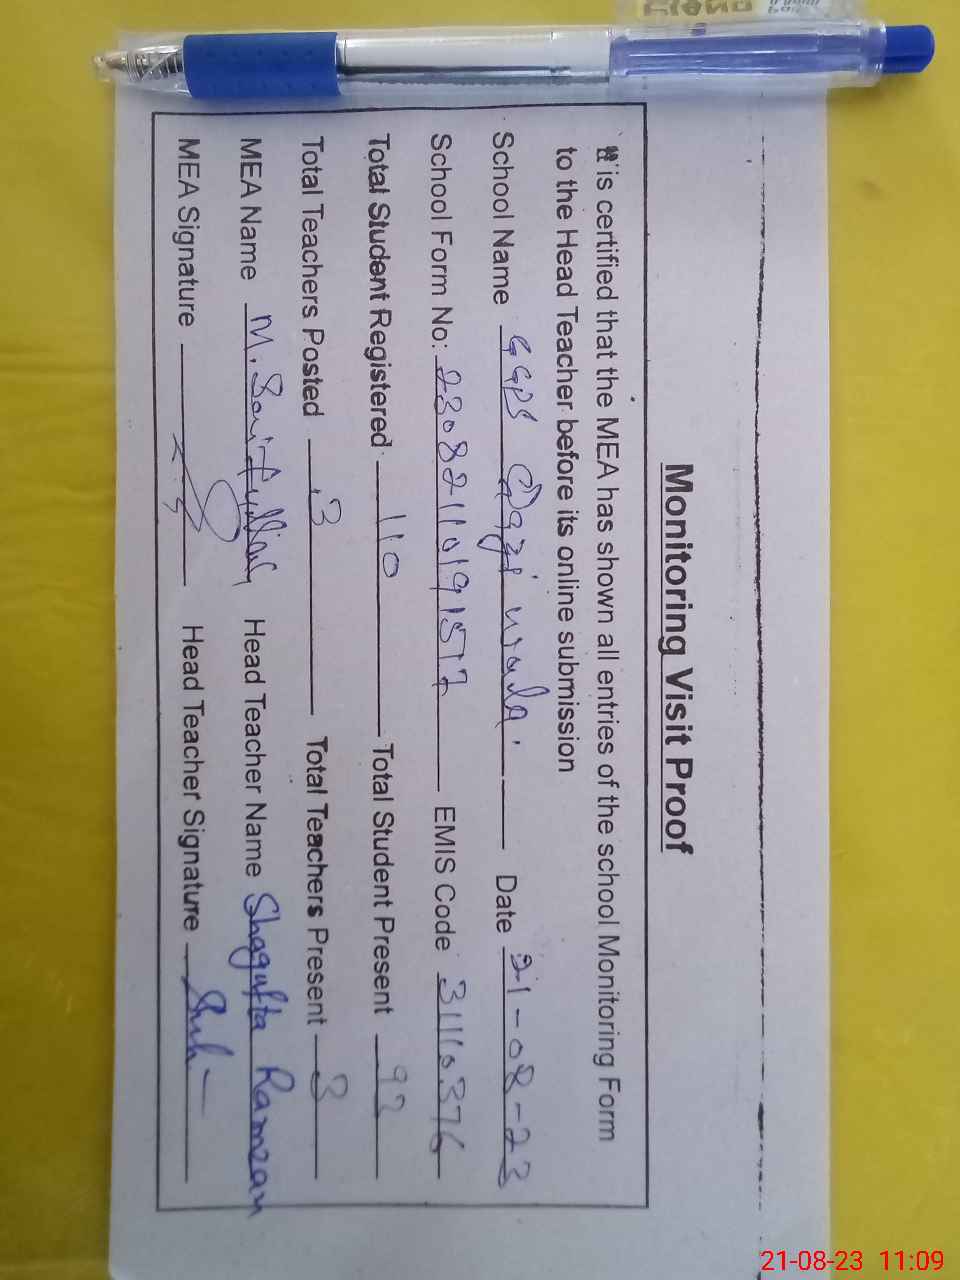 Monitoring Visit Proof
It is certified that the MEA has shown all entries of the school Monitoring Form
to the Head Teacher before its online submission
School Name GGPS Qazi wala. Date 21-08-23
School Form No: 23082110191512 EMIS Code 31110376
Total Student Registered 110 Total Student Present 92
Total Teachers Posted 3 Total Teachers Present 3
MEA Name M. Saifullah Head Teacher Name Shagufta Ramzan
MEA Signature Head Teacher Signature
21-08-23 11:09